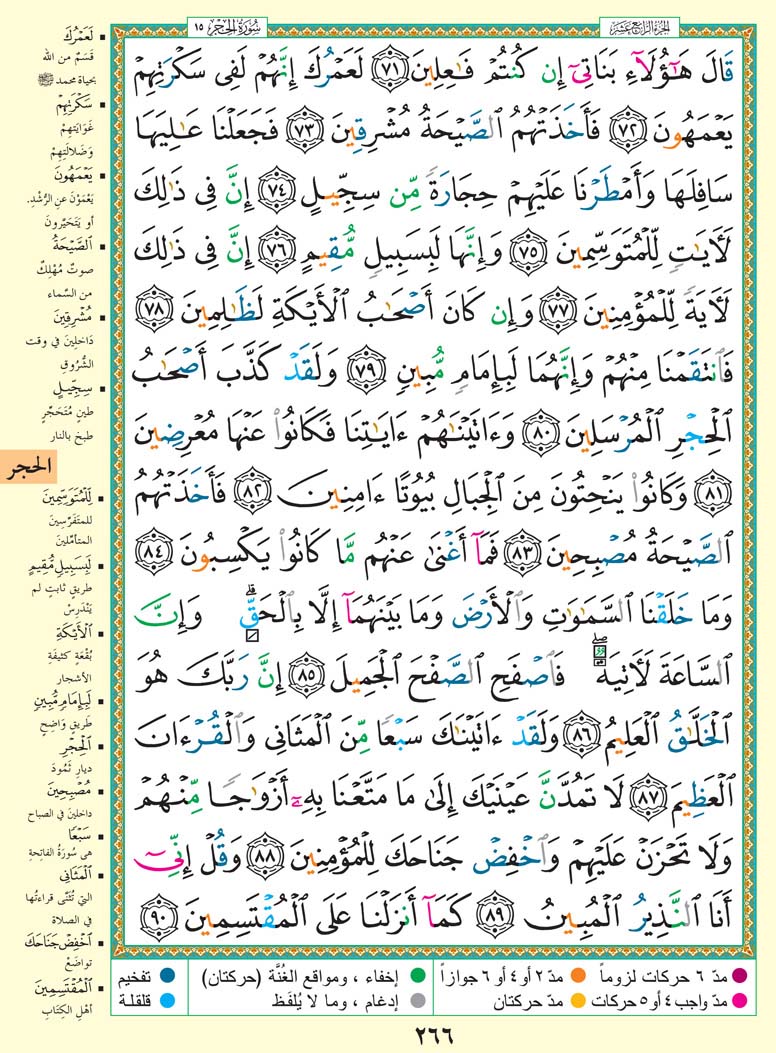 الجزء الرابع عشر
سورة الحجر ١٥
قَالَ هَٰٓؤُلَآءِ بَنَاتِيٓ إِن كُنتُمۡ فَٰعِلِينَ ٧١ لَعَمۡرُكَ إِنَّهُمۡ لَفِي سَكۡرَتِهِمۡ
يَعۡمَهُونَ ٧٢ فَأَخَذَتۡهُمُ ٱلصَّيۡحَةُ مُشۡرِقِينَ ٧٣ فَجَعَلۡنَا عَٰلِيَهَا
سَافِلَهَا وَأَمۡطَرۡنَا عَلَيۡهِمۡ حِجَارَةٗ مِّن سِجِّيلٍ ٧٤ إِنَّ فِي ذَٰلِكَ
لَأٓيَٰتٖ لِّلۡمُتَوَسِّمِينَ ٧٥ وَإِنَّهَا لَبِسَبِيلٖ مُّقِيمٍ ٧٦ إِنَّ فِي ذَٰلِكَ
لَأٓيَةٗ لِّلۡمُؤۡمِنِينَ ٧٧ وَإِن كَانَ أَصۡحَٰبُ ٱلۡأَيۡكَةِ لَظَٰلِمِينَ ٧٨
فَٱنتَقَمۡنَا مِنۡهُمۡ وَإِنَّهُمَا لَبِإِمَامٖ مُّبِينٖ ٧٩ وَلَقَدۡ كَذَّبَ أَصۡحَٰبُ
ٱلۡحِجۡرِ ٱلۡمُرۡسَلِينَ ٨٠ وَءَاتَيۡنَٰهُمۡ ءَايَٰتِنَا فَكَانُواْ عَنۡهَا مُعۡرِضِينَ
٨١ وَكَانُواْ يَنۡحِتُونَ مِنَ ٱلۡجِبَالِ بُيُوتًا ءَامِنِينَ ٨٢ فَأَخَذَتۡهُمُ
ٱلصَّيۡحَةُ مُصۡبِحِينَ ٨٣ فَمَآ أَغۡنَىٰ عَنۡهُم مَّا كَانُواْ يَكۡسِبُونَ ٨٤
وَمَا خَلَقۡنَا ٱلسَّمَٰوَٰتِ وَٱلۡأَرۡضَ وَمَا بَيۡنَهُمَآ إِلَّا بِٱلۡحَقِّۗ وَإِنَّ
ٱلسَّاعَةَ لَأٓتِيَةٞۖ فَٱصۡفَحِ ٱلصَّفۡحَ ٱلۡجَمِيلَ ٨٥ إِنَّ رَبَّكَ هُوَ
ٱلۡخَلَّٰقُ ٱلۡعَلِيمُ ٨٦ وَلَقَدۡ ءَاتَيۡنَٰكَ سَبۡعٗا مِّنَ ٱلۡمَثَانِي وَٱلۡقُرۡءَانَ
ٱلۡعَظِيمَ ٨٧ لَا تَمُدَّنَّ عَيۡنَيۡكَ إِلَىٰ مَا مَتَّعۡنَا بِهِۦٓ أَزۡوَٰجٗا مِّنۡهُمۡ
وَلَا تَحۡزَنۡ عَلَيۡهِمۡ وَٱخۡفِضۡ جَنَاحَكَ لِلۡمُؤۡمِنِينَ ٨٨ وَقُلۡ إِنِّيٓ
أَنَا ٱلنَّذِيرُ ٱلۡمُبِينُ ٨٩ كَمَآ أَنزَلۡنَا عَلَى ٱلۡمُقۡتَسِمِينَ ٩٠
لَعَمْرُكَ
قَسَمٌ من الله
بحياة محمد ﷺ
سَكْرَتِهِمْ
غَوَايَتِهمْ
وَضَلالَتِهِمْ
يَعْمَهُونَ
يَعْمَوْنَ عنِ الرُّشْدِ.
أو يَتَحَيَّرونَ
الصَّيْحَةُ
صوتٌ مُهْلِكٌ
من السَّماء
مُشْرِقِينَ
دَاخلينَ في وقت
الشُّرُوقِ
سِجِّيلٍ
طينٍ مُتَحَجِّرٍ
طبخ بالنار
الحجر
لِلْمُتَوَسِّمِينَ
للمتَفَرِّسِينَ
المتأمِّلينَ
لَبِسَبِيلٍ مُّقِيمٍ
طريقٍ ثابتٍ لم
يَنْدَرِسْ
الْأَيْكَةِ
بُقْعَةٍ كثيفَةِ
الأشجار
لَبِإِمَامٍ مُّبِينٍ
طَريقٍ وَاضحٍ
الْحِجْرِ
ديارِ ثَمُودَ
مُصْبِحِينَ
داخلينَ في الصباح
سَبْعًا
هي سُورَةُ الفاتِحة
الْمَثَانِي
التي تُثَنَّى قراءتُها
في الصلاة
اخْفِضْ جَنَاحَكَ
تواضَعْ
الْمُقْتَسِمِينَ
أهْلِ الكِتَابِ
مدّ ٦ حركات لزوماً مدّ ٢ أو ٤ أو ٦ جوازاً إخفاء ، ومواقع الغُنَّة (حركتان) تفخيم
مدّ واجب ٤ أو ٥ حركات مدّ حركتان إدغام ، وما لا يُلفَظ قلقلة
٢٦٦